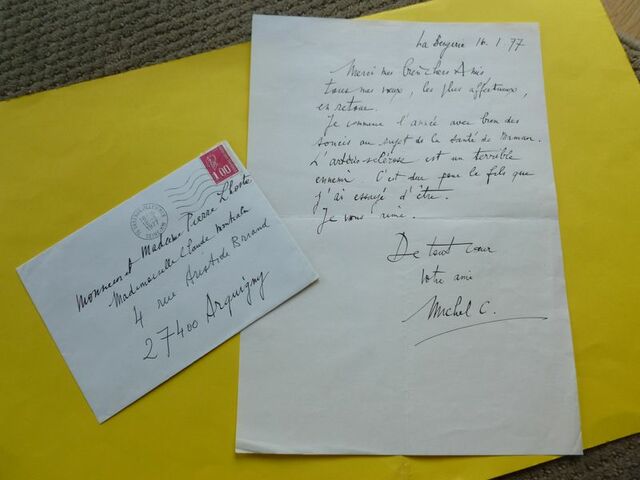 La Bergerie 16.1.77
Merci mes bien chers Amis
tous mes vœux, les plus affectueux,
en retour.
Je commence l'année avec bien des
soucis au sujet de la santé de Maman.
L'artério-sclérose est un terrible
ennemi. C'est dur pour le fils que
j'ai essayé d'être.
Je vous aime.
De tout cœur
Votre ami
Michel C.
1.00
1977
Monsieur et Madame Pierre Lhoste
Mademoiselle Claude Montralin
4 rue Aristide Briand
27400 Acquigny